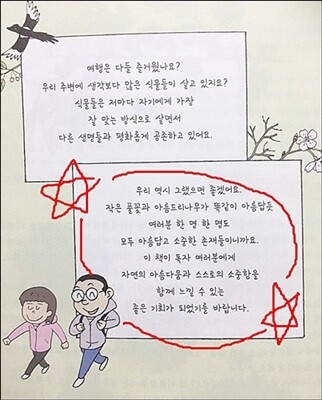 여행은 다들 즐거웠나요?
우리 주변에 생각보다 많은 식물들이 살고 있지요?
식물들은 저마다 자기에게 가장
잘 맞는 방식으로 살면서
다른 생명들과 평화롭게 공존하고 있어요.
우리 역시 그랬으면 좋겠어요.
작은 풀꽃과 아름드리나무가 똑같이 아름답듯
여러분 한 명 한 명도
모두 아름답고 소중한 존재들이니까요.
이 책이 독자 여러분에게
자연의 아름다움과 스스로의 소중함을
함께 느낄 수 있는
좋은 기회가 되었기를 바랍니다.